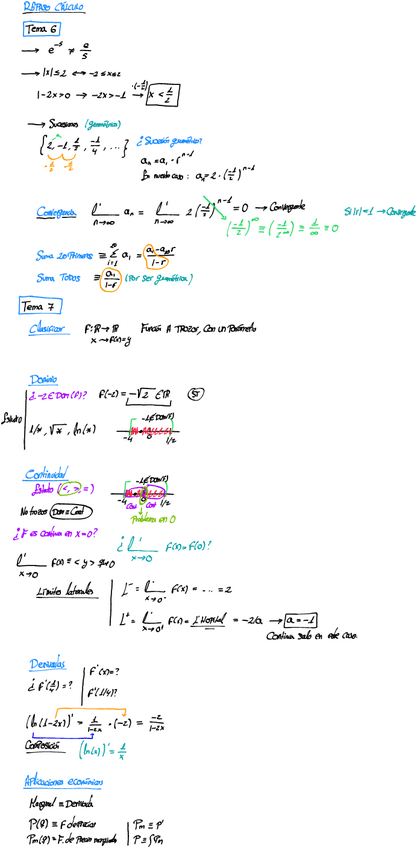 REPASO CÁLCULO
Tema 6
→ e^-5 ≠ e/5
→ |x| ≤ 2 ↔ -2 ≤ x ≤ 2
1-2x > 0 → -2x > -1 → ·(-1/2) x < 1/2
→ Sucesiones (geométrica)
{2, -1, 1/2, -1/4, ...} ¿Sucesión geométrica?
-1/2 -1/2
an = a1 · r^n-1
En nuestro caso: an = 2·(-1/2)^n-1
Convergencia lim n→∞ an = lim n→∞ 2(-1/2)^n-1 = 0 → Convergente Si |r|<1 → Convergente
(-1/2)^∞ = (-1/2^∞) = 1/∞ = 0
Suma 20 Primeros ≡
Suma Todos ≡ a1/1-r (Por ser geométrica)
Tema 7
Clasificar F: R → R Función A TROZOS, con un Parámetro
x → f(x)=y
Dominio
¿-2 ∈ Dom(F)? F(-2) = -√2 ∈ R SI
Estudio 1/*, √*, ln(*)
-4 0 1/2
Continuidad
Estudio (<, >, =)
-4 0 1/2
No trozos Dom = Cont
Cont Cont
Problema en 0
¿F es continua en x=0? ¿ lim x→0 F(x) = F(0)?
lim x→0 F(x) = < y >
Límites laterales L^- = lim x→0^- F(x) = ... = 2
L^+ = lim x→0^+ F(x) = L'Hopital = -2a → a = -1
Continua solo en este caso
Derivadas
¿F'(1/4) = ? F'(x) = ?
F'(1/4)?
(ln(1-2x))' = 1/1-2x · (-2) = -2/1-2x
Composición (ln(x))' = 1/x
Aplicaciones económicas
Marginal ≡ Derivada
P(q) ≡ F de Precios Pm ≡ P'
Pm(q) = F. de Precios marginales P ≡ ∫Pm